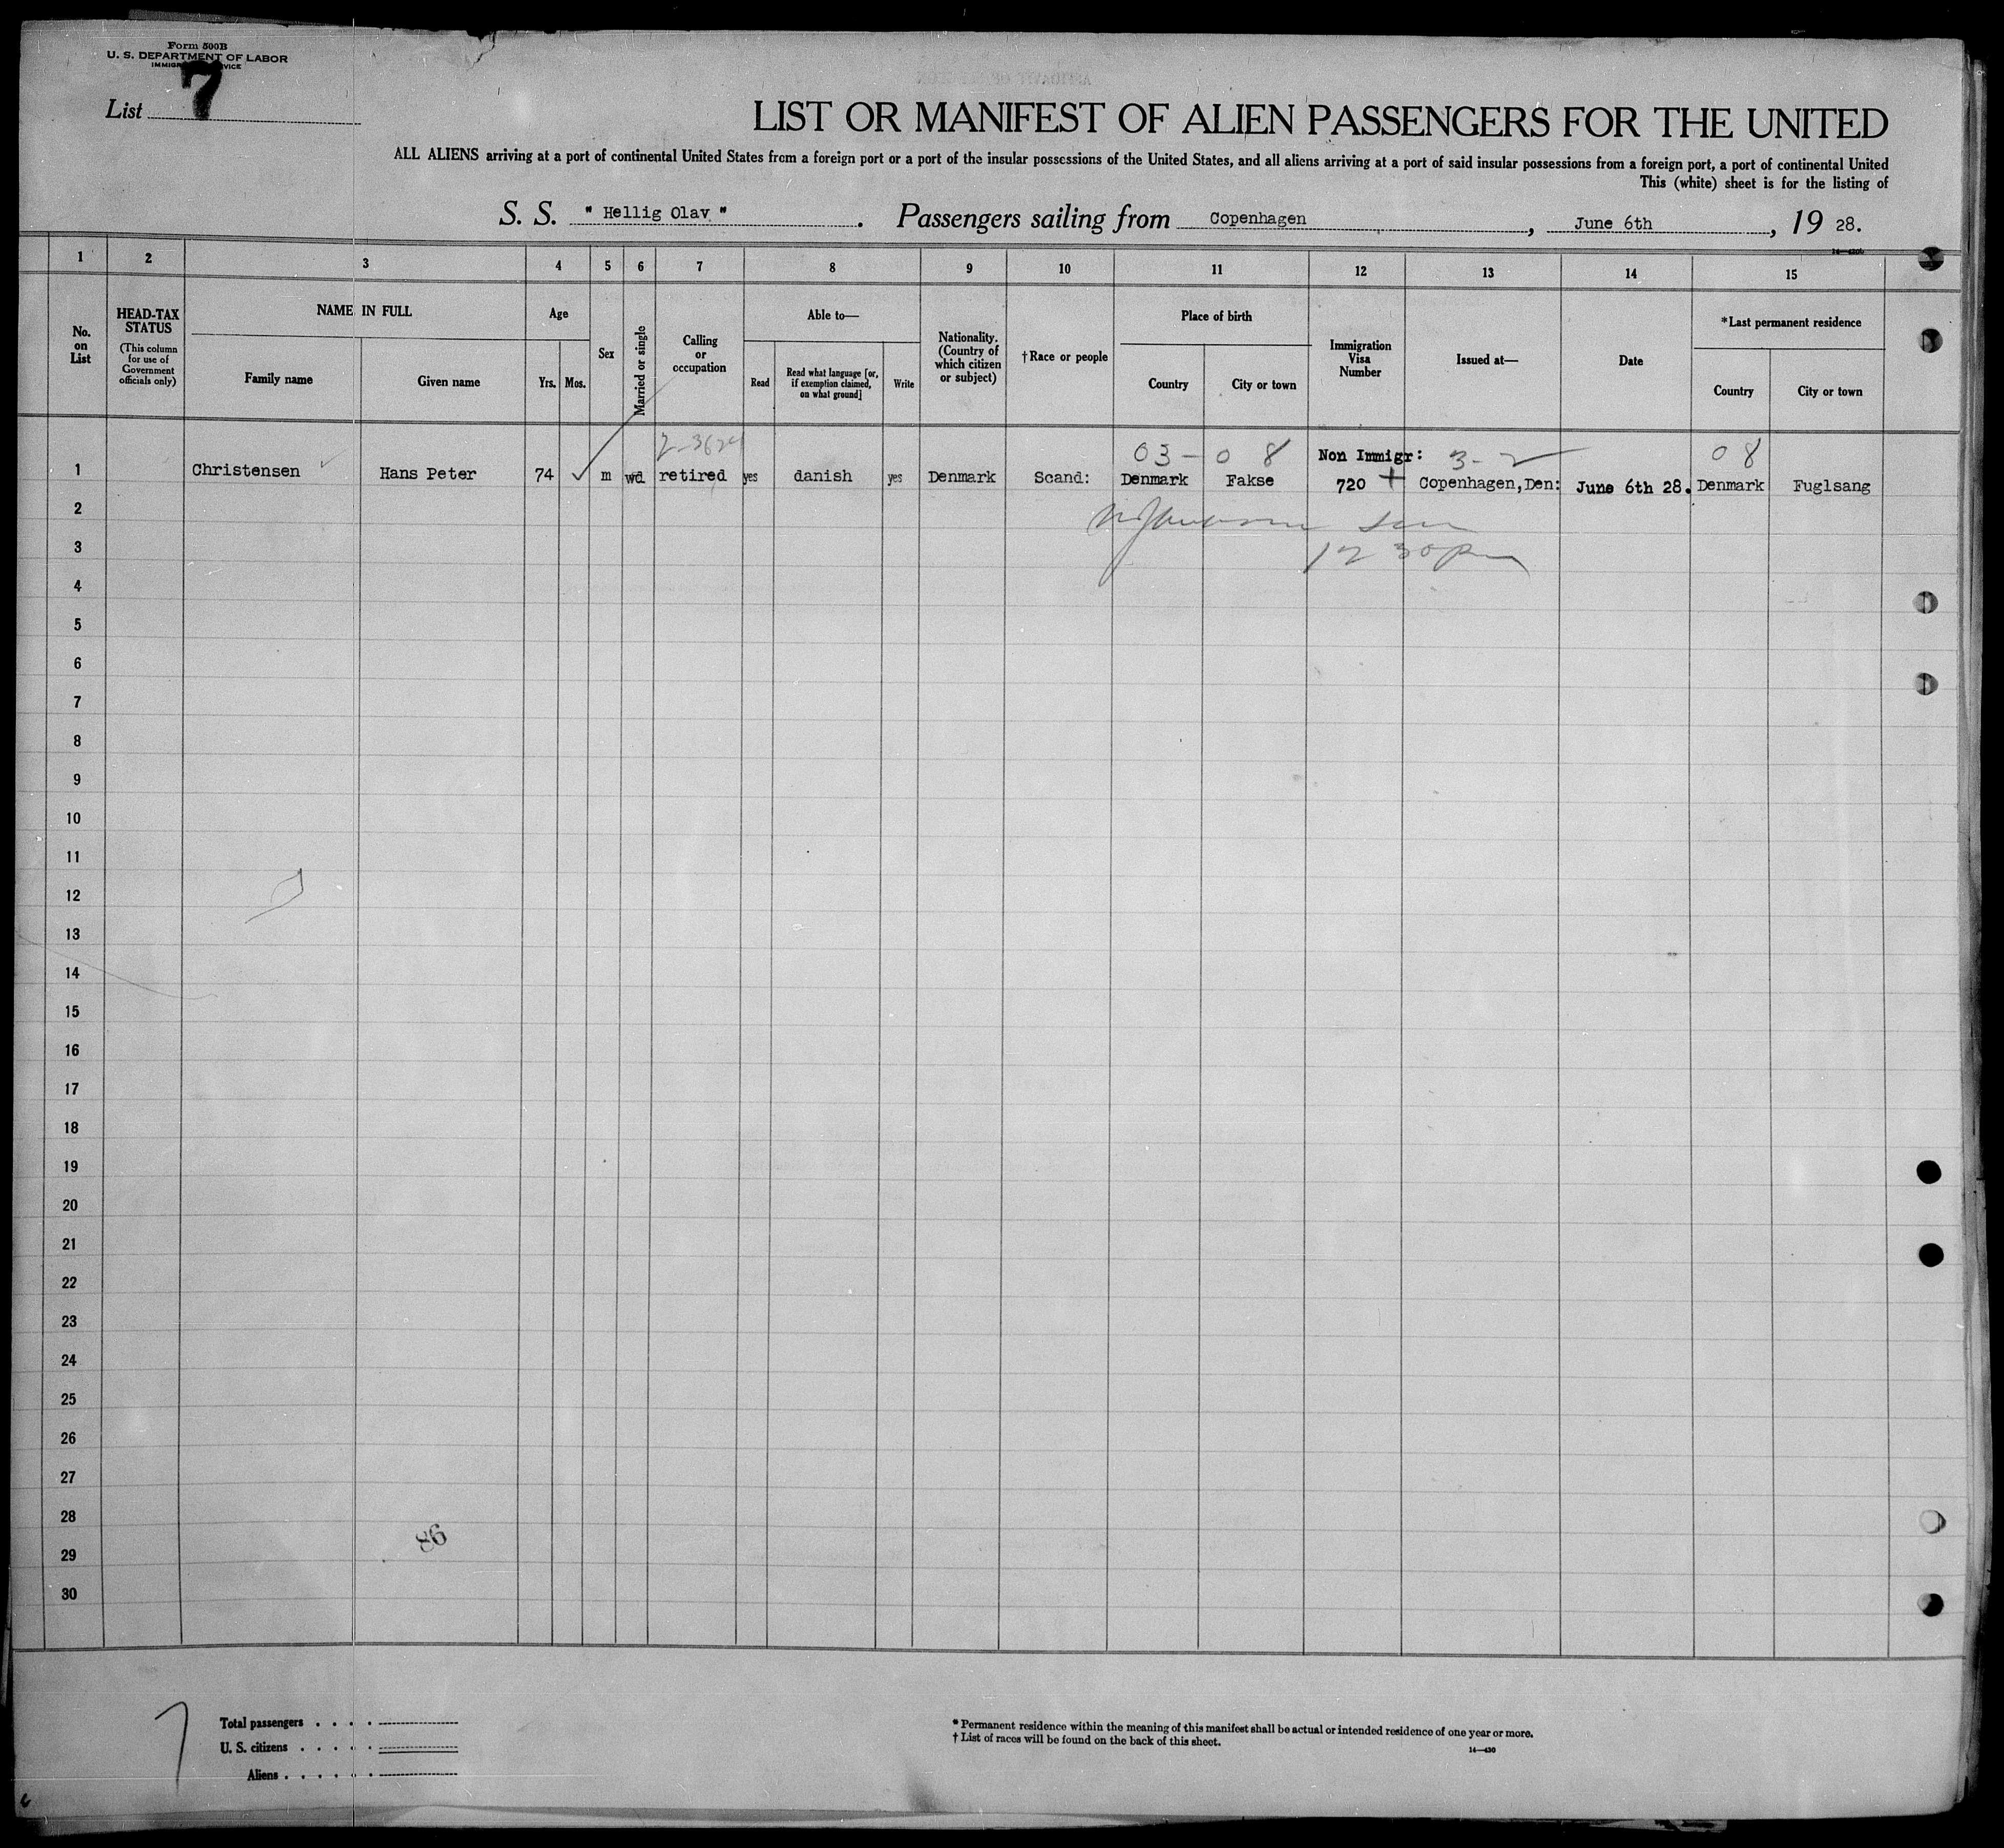 Form 500B
U. S. DEPARTMENT OF LABOR
List 7
LIST OR MANIFEST OF ALIEN PASSENGERS FOR THE UNITED
ALL ALIENS arriving at a port of continental United States from a foreign port or a port of the insular possessions of the United States, and all aliens arriving at a port of said insular possessions from a foreign port, a port of continental United
This (white) sheet is for the listing of
S. S. " Hellig Olav " . Passengers sailing from Copenhagen , June 6th , 19 28.
1 2 3 4 5 6 7 8 9 10 11 12 13 14 15
No. on List
HEAD-TAX STATUS
(This column for use of Government officials only)
NAME IN FULL
Family name
Given name
Age
Yrs.
Mos.
Sex
Married or single
Calling or occupation
Able to—
Read
Read what language [or, if exemption claimed, on what ground]
Write
Nationality. (Country of which citizen or subject)
†Race or people
Place of birth
Country
City or town
Immigration Visa Number
Issued at—
Date
*Last permanent residence
Country
City or town
03- 0 8 Non Immigr: 3-2 08
1 Christensen Hans Peter 74 m wd retired yes danish yes Denmark Scand: Denmark Fakse 720 Copenhagen,Den: June 6th 28. Denmark Fuglsang
2
3 12 30 pm
4
5
6
7
8
9
10
11
12
13
14
15
16
17
18
19
20
21
22
23
24
25
26
27
28
86
29
30
7
Total passengers . . . .
U. S. citizens . . . . .
Aliens . . . . . .
* Permanent residence within the meaning of this manifest shall be actual or intended residence of one year or more.
† List of races will be found on the back of this sheet.
14—430